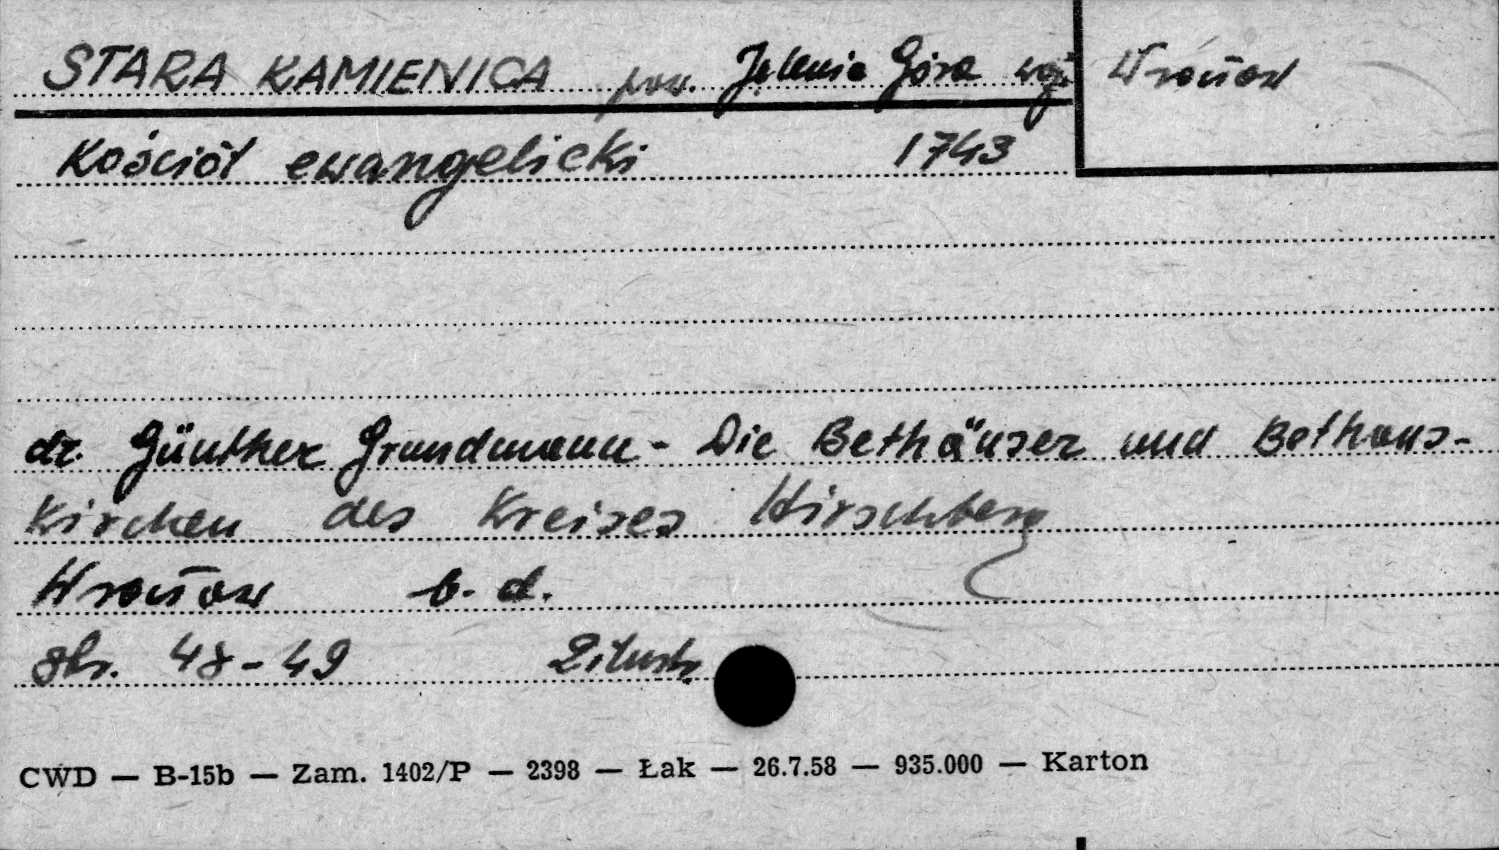 STARA KAMIENICA pow. Jelenia Góra woj. Wrocław
Kościół ewangelicki 1743
dr. Günther Grundmann - Die Bethäuser und Bethaus-
kirchen des Kreises Hirschberg
Wrocław b.d.
str. 48-49 2 ilustr.
CWD — B-15b — Zam. 1402/P — 2398 — Łak — 26.7.58 — 935.000 — Karton